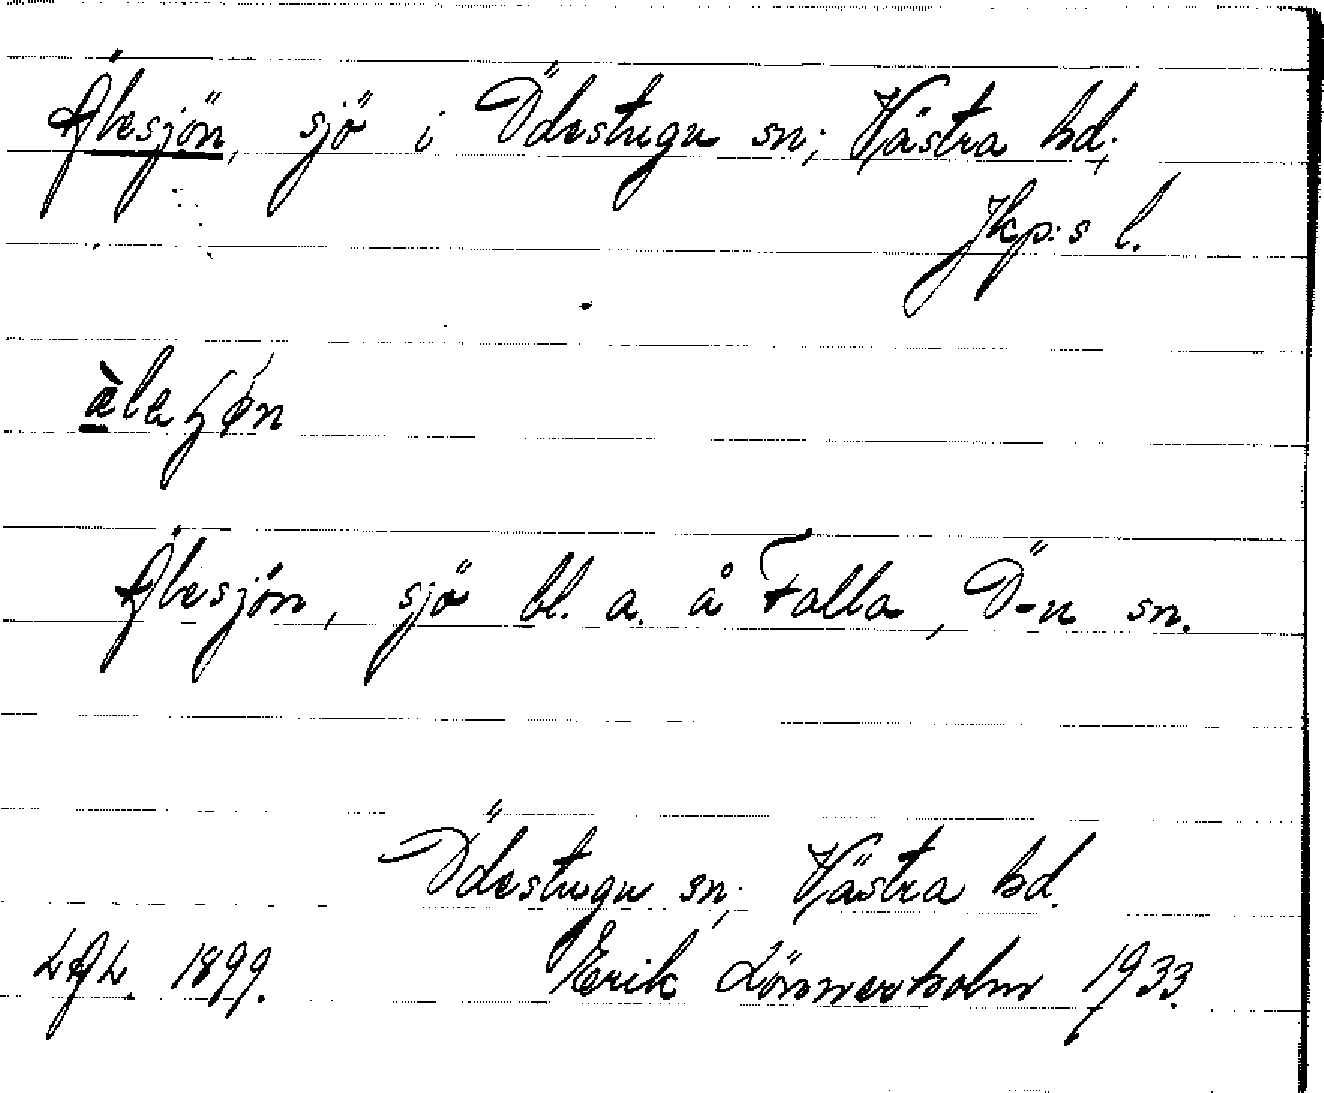 Älesjön, sjö i Ödestugu sn; Västra hd;
Jkp:s l.
Älesjön, sjö bl. a. å Falla, Ö-u sn.
Ödestugu sn; Västra hd.
LAL. 1899. Erik Lönnerholm 1933.